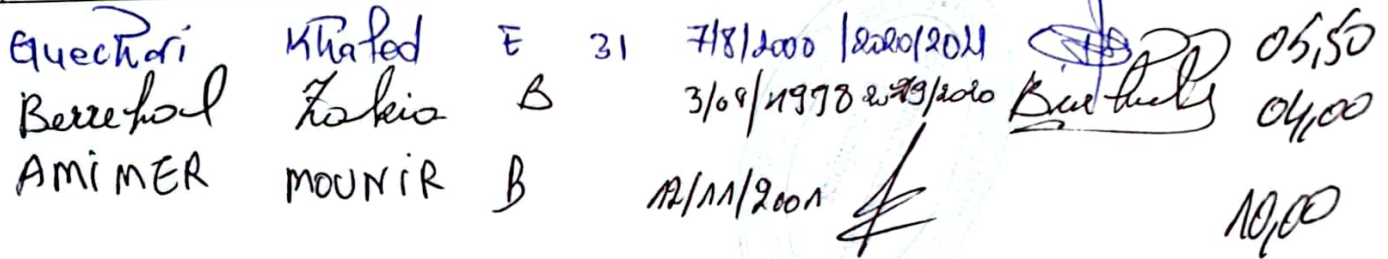 Guechari Khaled E 31 7/8/2000 /2020/2021 05,50
Berrehal Zakia B 3/08/1998 2019/2020 04,00
AMIMER MOUNIR B 12/11/2001 10,00